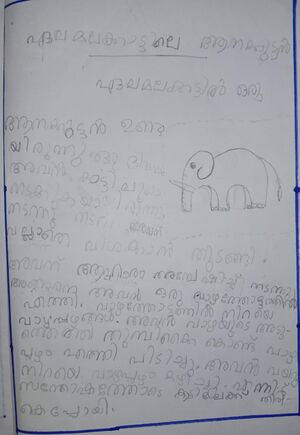 ഏലമലക്കാട്ടിലെ ആനക്കുട്ടൻ
ഏലമലക്കാട്ടിൽ ഒരു
ആനക്കുട്ടൻ ഉണ്ടാ
യിരുന്നു. ഒരു ദിവസം
അവൻ കാട്ടിലൂടെ
നടക്കുകയായിരുന്നു.
നടന്ന് നടന്ന് അവന്
വല്ലാതെ വിശക്കാൻ തുടങ്ങി.
അവന് ആഹാരം അന്വേഷിച്ച് നടന്നു.
അങ്ങനെ അവൻ ഒരു വാഴത്തോട്ടത്തിൽ
എത്തി. വാഴത്തോട്ടത്തിൽ നിറയെ
വാഴപ്പഴങ്ങൾ. അവൻ വാഴയുടെ അടു
ത്തെത്തി തുമ്പികൈ കൊണ്ട് വാഴ
പ്പഴം എത്തി പിടിച്ചു. അവൻ വയറു
നിറയെ വാഴപ്പഴം കഴിച്ചു. എന്നിട്ട്
സന്തോഷത്തോടെ കാട്ടിലേക്ക് തിരി
കെപ്പോയി.